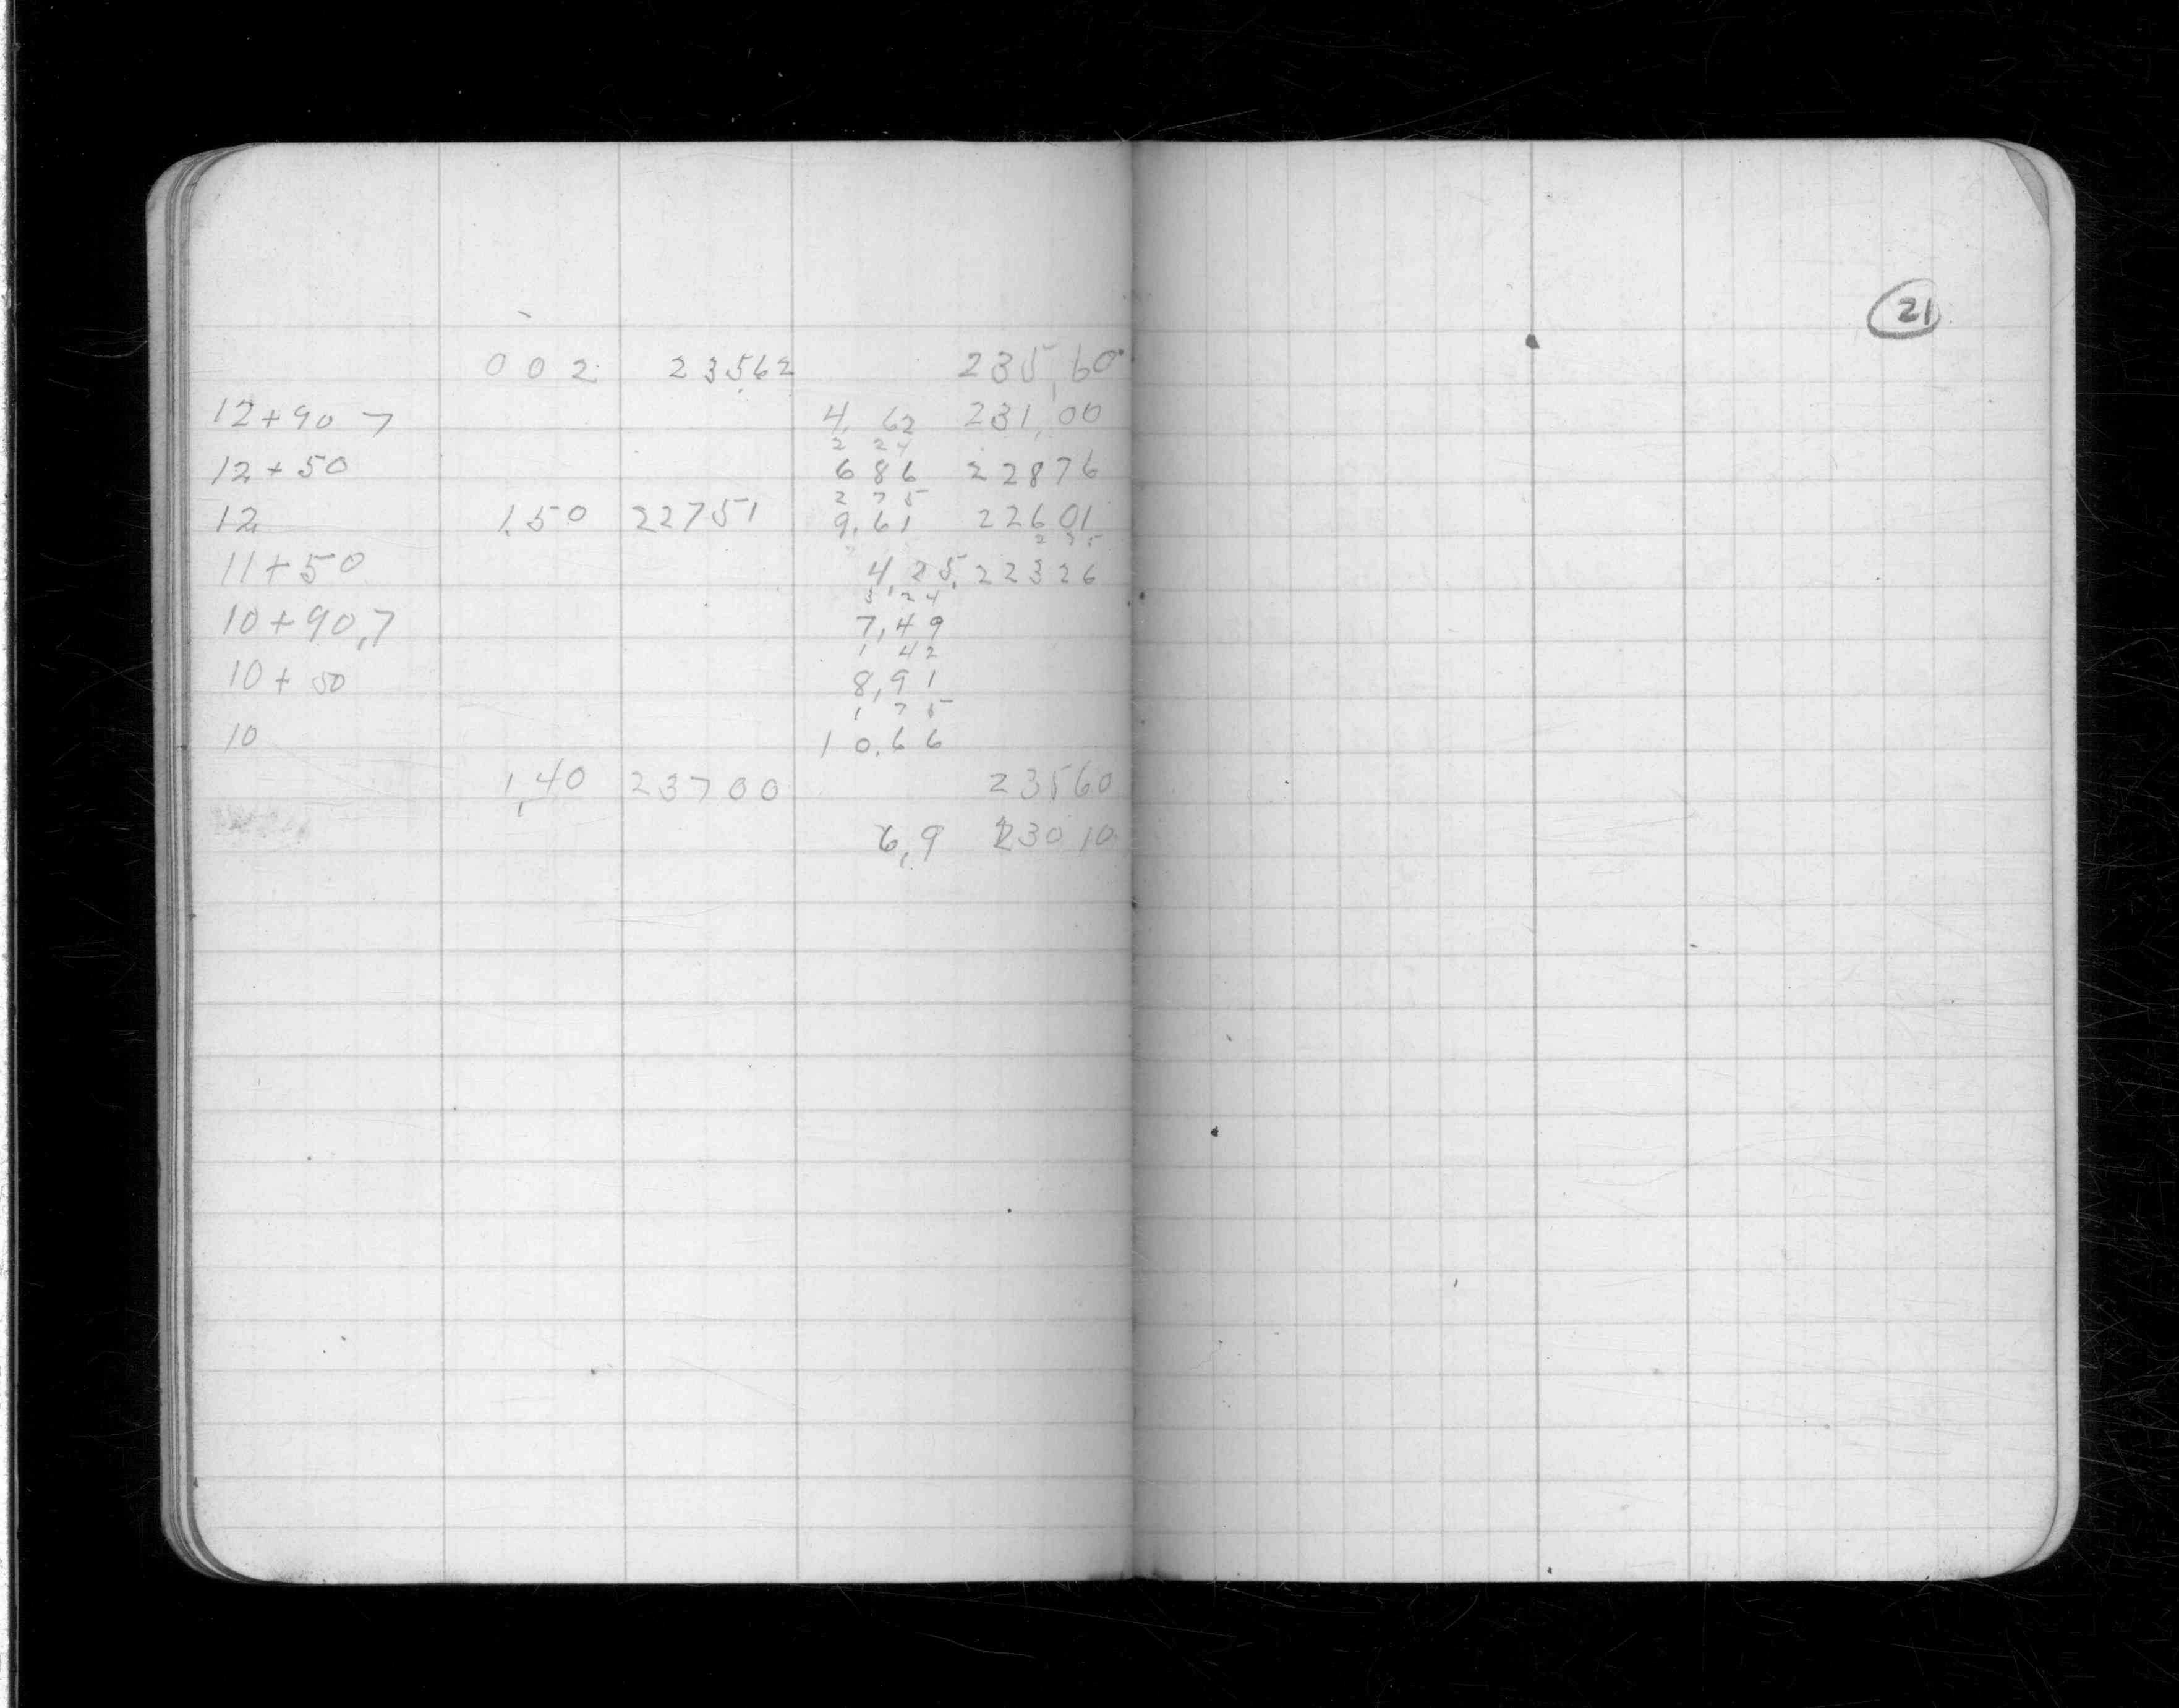 0 0 2 23562 235,60
12+90 7 4, 62 231,00
2 24
12+50 686 22876
2 75
12 1.50 22751 9.61 22601
2 75
11+50 4,25 22326
3 24
10+90,7 7,49
1 42
10+50 8,91
1 75
10 10.66
1,40 23700 23560
6,9 23010
21